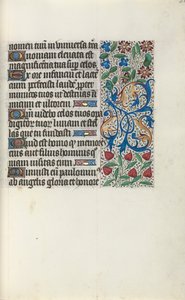 nomen tuū in universa tra
Quoniam elevata est
magnificentia tua sup celos
Ex ore infanciū et lacten
cium perfecisti laudē propter
inimicos tuos ut destruas in
imicum et ultorem
Qm videbo celos tuos opa
digitor tuor lunam et stel
las que tu fundasti
Quid est homo qd memor
es eius aut filius hominis qm
visitas eum
Minuisti eū paulominus
ab angelis gloria et honore